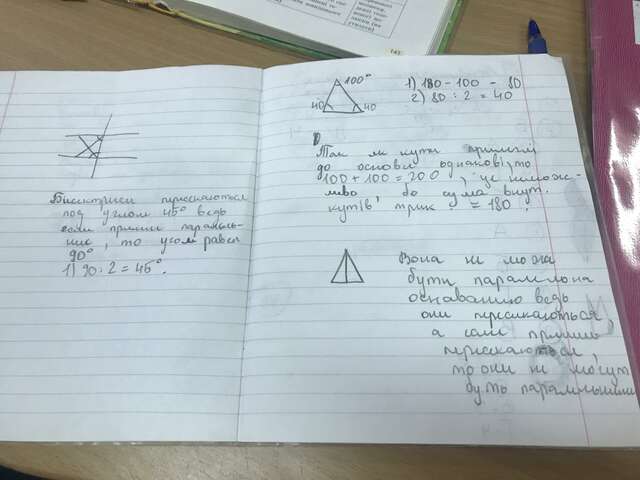 Бисектриси пересекаються
под углом 45° ведь
если прямые паралель-
ние, то угол равен
90°
1) 90 : 2 = 45°.
100°
40
40
1) 180 - 100 - 80
2) 80 : 2 = 40
Так як кути прилеглі
до основи однакові, то
100 + 100 = 200, це немож-
ливо, бо сума внут.
кутів трик. = 180.
Вона не може
бути паралельна
основанию ведь
они пересикаються,
а если прямые
пересекаються,
то они не могут
быть паралельными
142